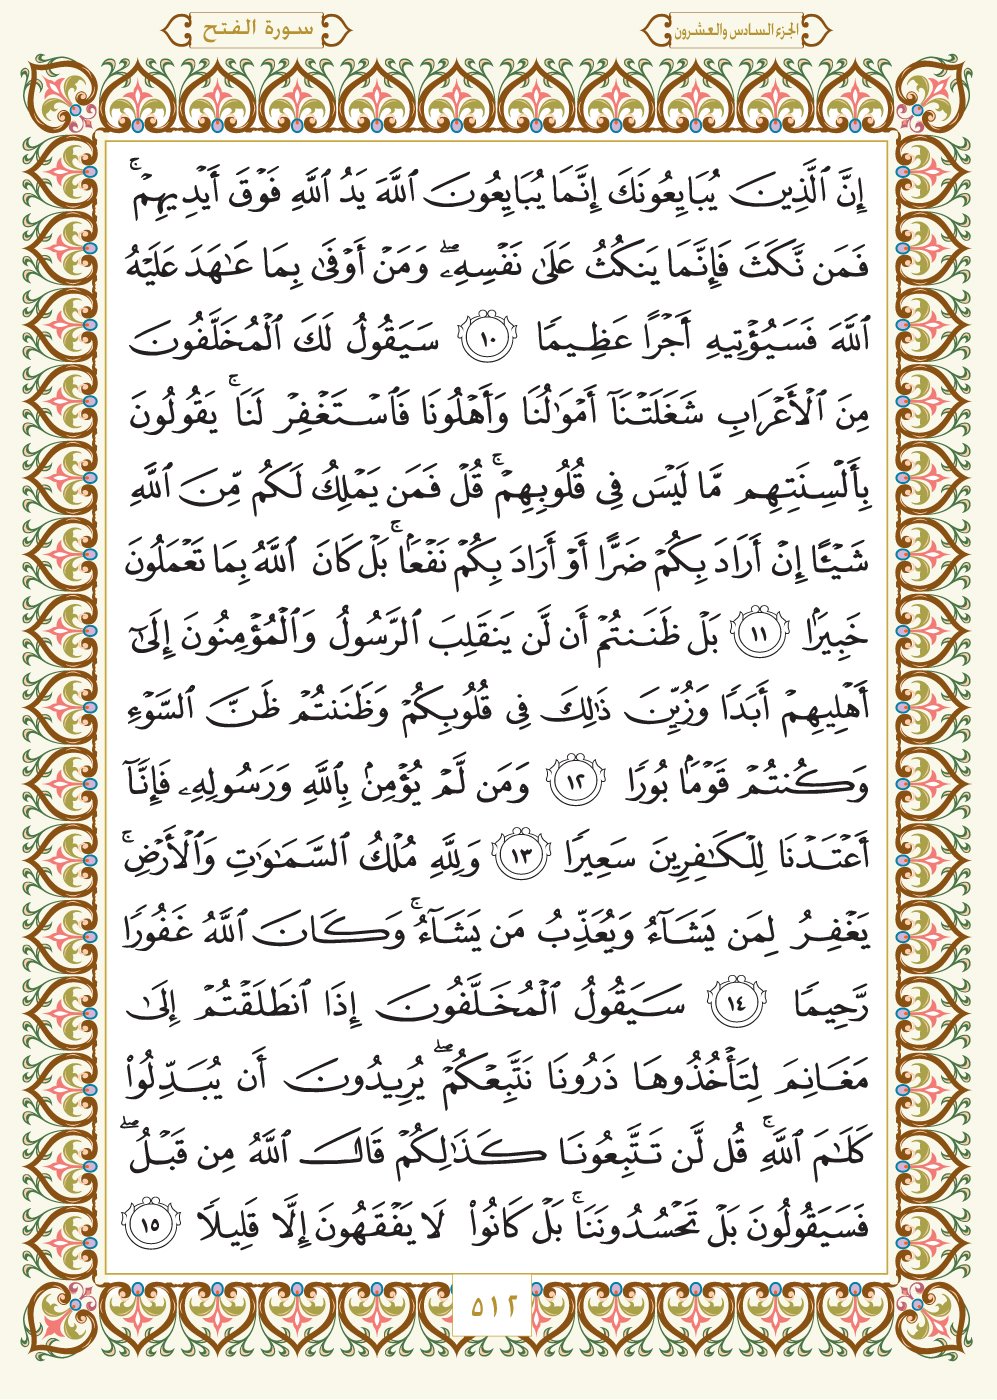 الجزء السادس والعشرون
سورة الفتح
إِنَّ ٱلَّذِينَ يُبَايِعُونَكَ إِنَّمَا يُبَايِعُونَ ٱللَّهَ يَدُ ٱللَّهِ فَوْقَ أَيْدِيهِمْ ۚ
فَمَن نَّكَثَ فَإِنَّمَا يَنكُثُ عَلَىٰ نَفْسِهِۦ ۖ وَمَنْ أَوْفَىٰ بِمَا عَـٰهَدَ عَلَيْهُ
ٱللَّهَ فَسَيُؤْتِيهِ أَجْرًا عَظِيمًا ١٠ سَيَقُولُ لَكَ ٱلْمُخَلَّفُونَ
مِنَ ٱلْأَعْرَابِ شَغَلَتْنَآ أَمْوَٰلُنَا وَأَهْلُونَا فَٱسْتَغْفِرْ لَنَا ۚ يَقُولُونَ
بِأَلْسِنَتِهِم مَّا لَيْسَ فِى قُلُوبِهِمْ ۚ قُلْ فَمَن يَمْلِكُ لَكُم مِّنَ ٱللَّهِ
شَيْـًٔا إِنْ أَرَادَ بِكُمْ ضَرًّا أَوْ أَرَادَ بِكُمْ نَفْعًۢا ۚ بَلْ كَانَ ٱللَّهُ بِمَا تَعْمَلُونَ
خَبِيرًۢا ١١ بَلْ ظَنَنتُمْ أَن لَّن يَنقَلِبَ ٱلرَّسُولُ وَٱلْمُؤْمِنُونَ إِلَىٰٓ
أَهْلِيهِمْ أَبَدًا وَزُيِّنَ ذَٰلِكَ فِى قُلُوبِكُمْ وَظَنَنتُمْ ظَنَّ ٱلسَّوْءِ
وَكُنتُمْ قَوْمًۢا بُورًا ١٢ وَمَن لَّمْ يُؤْمِنۢ بِٱللَّهِ وَرَسُولِهِۦ فَإِنَّآ
أَعْتَدْنَا لِلْكَـٰفِرِينَ سَعِيرًا ١٣ وَلِلَّهِ مُلْكُ ٱلسَّمَـٰوَٰتِ وَٱلْأَرْضِ ۚ
يَغْفِرُ لِمَن يَشَآءُ وَيُعَذِّبُ مَن يَشَآءُ ۚ وَكَانَ ٱللَّهُ غَفُورًا
رَّحِيمًا ١٤ سَيَقُولُ ٱلْمُخَلَّفُونَ إِذَا ٱنطَلَقْتُمْ إِلَىٰ
مَغَانِمَ لِتَأْخُذُوهَا ذَرُونَا نَتَّبِعْكُمْ ۖ يُرِيدُونَ أَن يُبَدِّلُوا۟
كَلَـٰمَ ٱللَّهِ ۚ قُل لَّن تَتَّبِعُونَا كَذَٰلِكُمْ قَالَ ٱللَّهُ مِن قَبْلُ ۖ
فَسَيَقُولُونَ بَلْ تَحْسُدُونَنَا ۚ بَلْ كَانُوا۟ لَا يَفْقَهُونَ إِلَّا قَلِيلًا ١٥
٥١٢